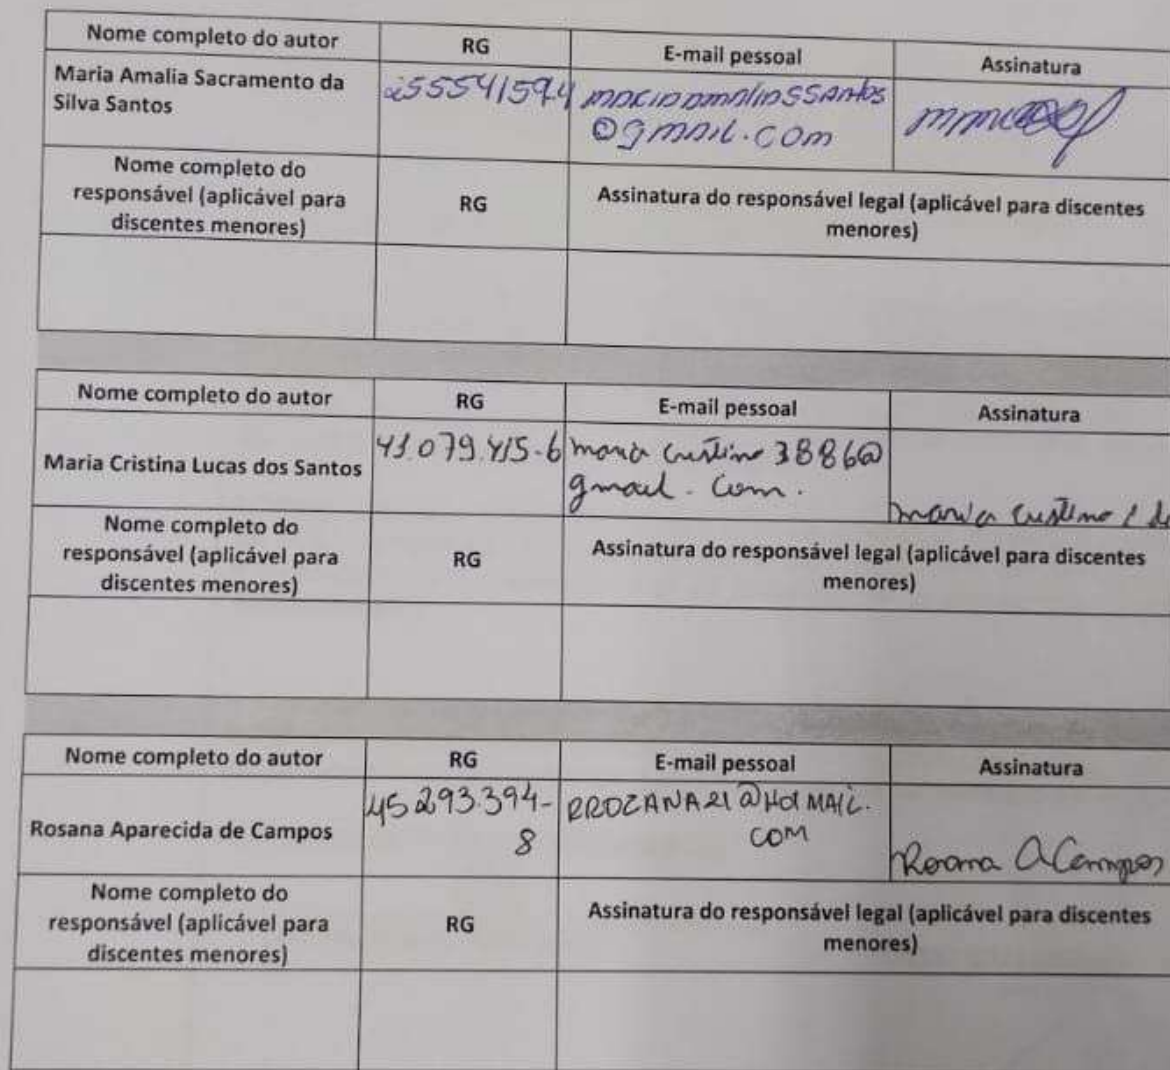 Nome completo do autor RG E-mail pessoal Assinatura
Maria Amalia Sacramento da
Silva Santos
255541594
@gmail.com
Nome completo do
responsável (aplicável para
discentes menores)
RG
Assinatura do responsável legal (aplicável para discentes
menores)
Nome completo do autor RG E-mail pessoal Assinatura
Maria Cristina Lucas dos Santos
41.079.415-6
maria cristina 3886@
gmail.com.
maria cristina l do
Nome completo do
responsável (aplicável para
discentes menores)
RG
Assinatura do responsável legal (aplicável para discentes
menores)
Nome completo do autor RG E-mail pessoal Assinatura
Rosana Aparecida de Campos
45293.394-
8
RROZANA21@HOTMAIL.
COM
Rosana A Campos
Nome completo do
responsável (aplicável para
discentes menores)
RG
Assinatura do responsável legal (aplicável para discentes
menores)